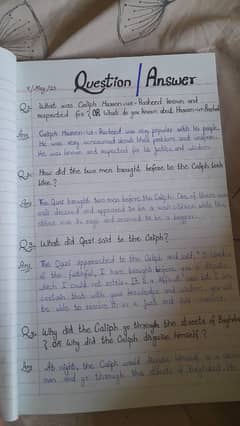 9/May/25
Question / Answer
Q1: What was Caliph Haroon-ur-Rasheed known and
respected for? OR What do you known about Haroon-ur-Rasheed
Ans: Caliph Haroon-ur-Rasheed was very popular with his people.
He was very concerned about their problems and welfare.
He was known and respected for his justice and wisdom.
Q2: How did the two men brought before the Caliph look
like?
Ans: The Qazi brought two men before the Caliph. One of them was
well dressed and appeared to be a rich citizen while the
other was in rags and seemed to be a beggar.
Q3: What did Qazi said to the Caliph?
Ans: The Qazi approached to the Caliph and said, "O leader
of the faithful, I have brought before you a dispute
which I could not settle. It is a difficult one but I am
certain that with your knowledge and wisdom, you will
be able to resolve it as a just and
Q4: Why did the Caliph go through the streets of Baghdad
? OR Why did the Caliph disguise himself?
Ans: At night, the Caliph would disguise himself as a
man and go through the streets of Baghdad. He